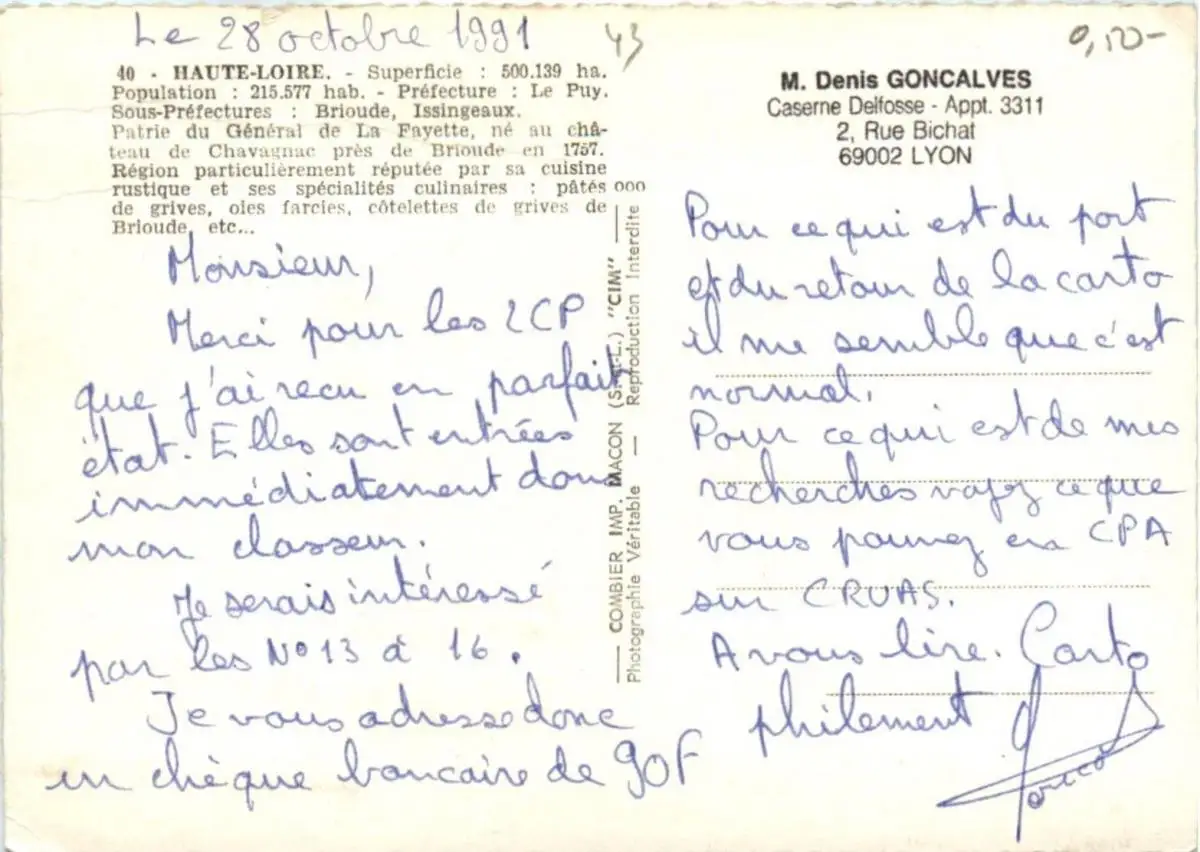 Le 28 octobre 1991
43
0,50-
40 - HAUTE-LOIRE. - Superficie : 500.139 ha.
Population : 215.577 hab. - Préfecture : Le Puy.
Sous-Préfectures : Brioude, Issingeaux.
Patrie du Général de La Fayette, né au châ-
teau de Chavagnac près de Brioude en 1757.
Région particulièrement réputée par sa cuisine
rustique et ses spécialités culinaires : pâtés
de grives, oies farcies, côtelettes de grives de
Brioude, etc...
Monsieur,
Merci pour les 2CP
que j'ai recu en parfait
état. Elles sont entrées
immédiatement dans
mon classeur.
Je serais intéressé
par les N°13 à 16.
Je vous adresse donc
un chèque bancaire de 90F
000
COMBIER IMP. MACON (S.-et-L.) "CIM"
Photographie Véritable — Reproduction Interdite
M. Denis GONCALVES
Caserne Delfosse - Appt. 3311
2, Rue Bichat
69002 LYON
Pour ce qui est du port
et du retour de la carto
il me semble que c'est
normal.
Pour ce qui est de mes
recherches voyez ce que
vous pouvez en CPA
sur CRUAS.
A vous lire. Carto
philement